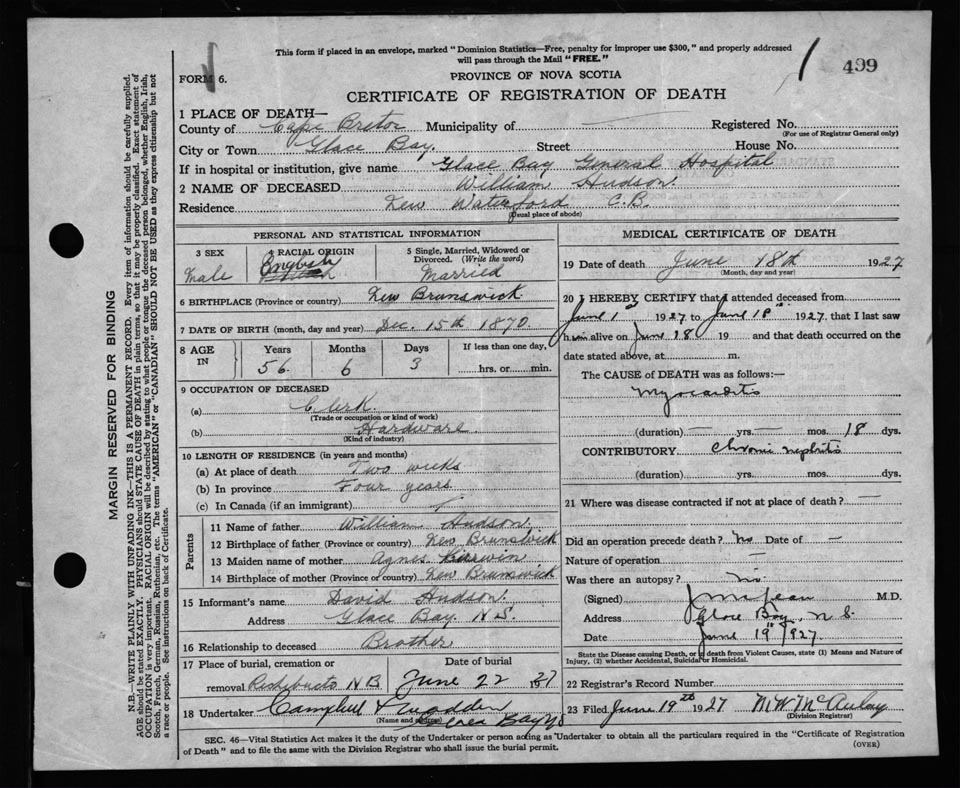 This form if placed in an envelope, marked "Dominion Statistics—Free, penalty for improper use $300," and properly addressed
will pass through the Mail "FREE."
499
FORM 6.
PROVINCE OF NOVA SCOTIA
CERTIFICATE OF REGISTRATION OF DEATH
1 PLACE OF DEATH—
County of Cape Breton Municipality of Registered No.
(For use of Registrar General only)
City or Town Glace Bay. Street House No.
If in hospital or institution, give name Glace Bay General Hospital
2 NAME OF DECEASED William Hudson.
Residence New Waterford C.B.
(Usual place of abode)
PERSONAL AND STATISTICAL INFORMATION
3 SEX 4 RACIAL ORIGIN 5 Single, Married, Widowed or
Divorced. (Write the word)
Male English Married
6 BIRTHPLACE (Province or country) New Brunswick
7 DATE OF BIRTH (month, day and year) Dec. 15th 1870.
8 AGE IN Years Months Days If less than one day,
56 6 3 hrs. or min.
9 OCCUPATION OF DECEASED
(a) Clerk
(Trade or occupation or kind of work)
(b) Hardware
(Kind of industry)
10 LENGTH OF RESIDENCE (in years and months)
(a) At place of death Two weeks
(b) In province Four years
(c) In Canada (if an immigrant)
Parents
11 Name of father William Hudson.
12 Birthplace of father (Province or country) New Brunswick
13 Maiden name of mother Agnes Kerwin
14 Birthplace of mother (Province or country) New Brunswick
15 Informant's name David Hudson.
Address Glace Bay. N.S.
16 Relationship to deceased Brother
17 Place of burial, cremation or Date of burial
removal Richibucto N B June 22 1927
18 Undertaker Campbell & Madden
(Name and address) Glace Bay NS
MEDICAL CERTIFICATE OF DEATH
19 Date of death June 18th 1927
(Month, day and year)
20 I HEREBY CERTIFY that I attended deceased from
June 1st 1927 to June 18th 1927, that I last saw
him alive on June 18 19 and that death occurred on the
date stated above, at m.
The CAUSE of DEATH was as follows:—
Myocarditis
(duration) — yrs. — mos. 18 dys.
CONTRIBUTORY Chronic nephritis
(duration) yrs. mos. dys.
21 Where was disease contracted if not at place of death? —
Did an operation precede death? No Date of —
Nature of operation —
Was there an autopsy? No.
(Signed) M.D.
Address Glace Bay, N S
Date June 19th 1927.
State the Disease causing Death, or if death from Violent Causes, state (1) Means and Nature of
Injury, (2) whether Accidental, Suicidal or Homicidal.
22 Registrar's Record Number
23 Filed June 19th 1927 M.W. McAulay
(Division Registrar)
SEC. 46—Vital Statistics Act makes it the duty of the Undertaker or person acting as Undertaker to obtain all the particulars required in the "Certificate of Registration
of Death" and to file the same with the Division Registrar who shall issue the burial permit.
(OVER)
MARGIN RESERVED FOR BINDING
N.B.—WRITE PLAINLY WITH UNFADING INK—THIS IS A PERMANENT RECORD. Every item of information should be carefully supplied.
AGE should be stated EXACTLY. PHYSICIANS should STATE CAUSE OF DEATH in plain terms, so that it may be properly classified. Exact statement of
OCCUPATION is very important. RACIAL ORIGIN will be described by stating to what people or tongue the deceased person belonged, whether English, Irish,
Scotch, French, German, Russian, Ruthenian, etc. The terms "AMERICAN" or "CANADIAN" SHOULD NOT BE USED as they express citizenship but not
a race or people. See instructions on back of Certificate.